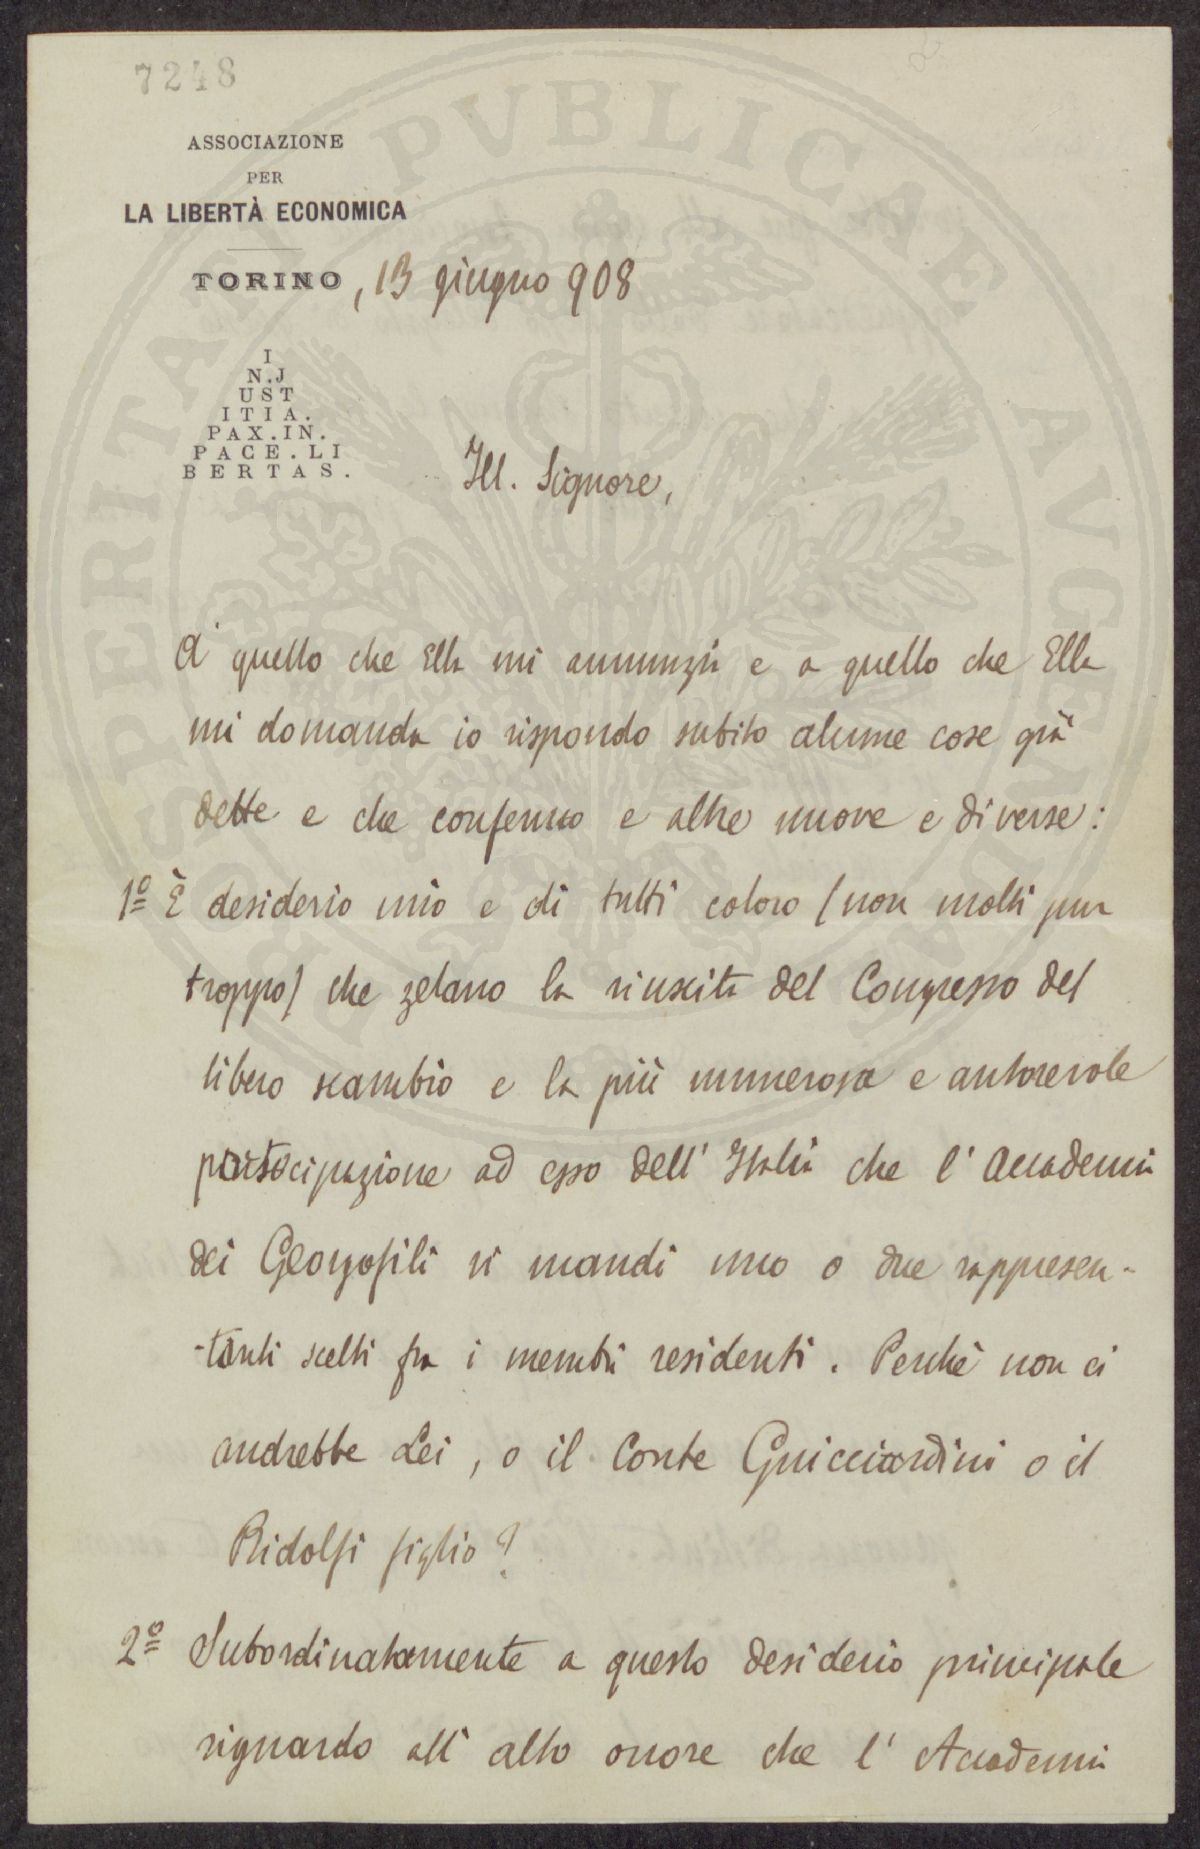 7248
ASSOCIAZIONE
PER
LA LIBERTÀ ECONOMICA
TORINO, 13 giugno 908
I
N.J
UST
ITIA.
PAX.IN.
PACE.LI
BERTAS.
Ill. Signore,
A quello che Ella mi annunzia e a quello che Ella
mi domanda io rispondo subito alcune cose già
dette e che confermo e altre nuove e diverse:
1º È desiderio mio e di tutti coloro (non molti pur
troppo) che zelano la riuscita del Congresso del
libero scambio e la più numerosa e autorevole
partecipazione ad esso dell'Italia che l'Accademia
dei Georgofili vi mandi uno o due rappresen-
-tanti scelti fra i membri residenti. Perchè non ci
andrebbe Lei, o il Conte Guicciardini o il
Ridolfi figlio?
2º Subordinatamente a questo desiderio principale
riguardo all'alto onore che l'Accademia
PROSPERITATI PVBLICAE AVGENDAE